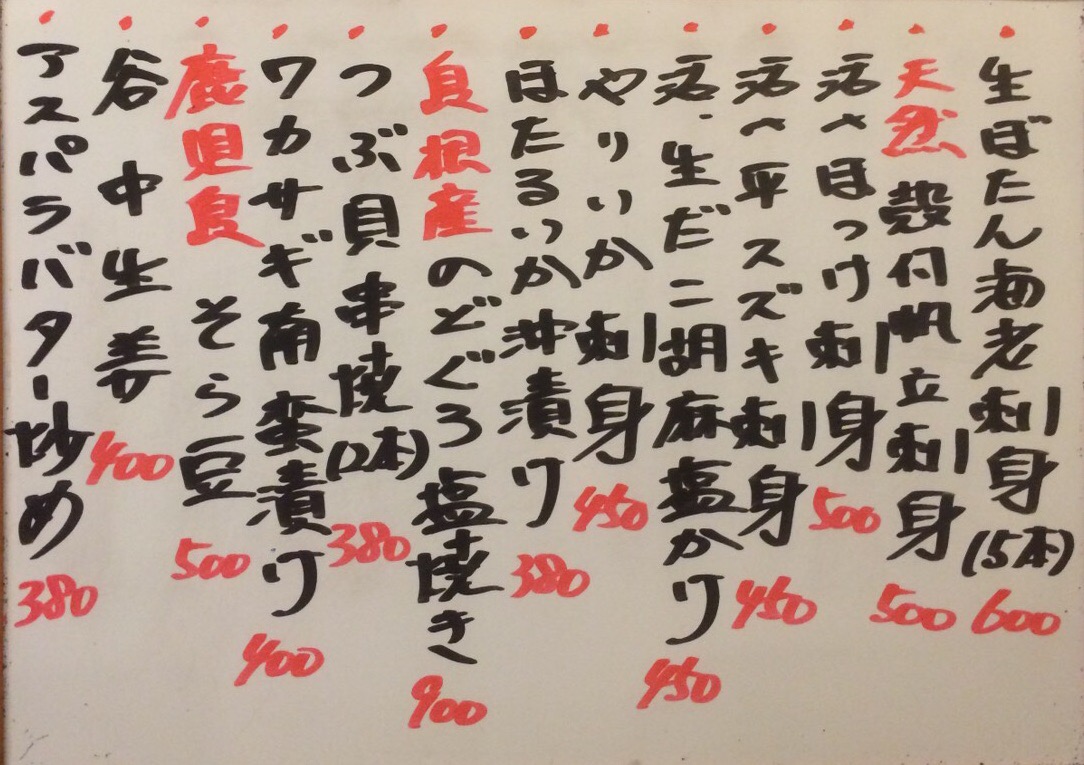 生ぼたん海老刺身(5本) 600
天然 殻付帆立刺身 500
活〆ほっけ刺身 500
活〆平スズキ刺身 450
活、生だこ胡麻塩かけ 450
やりいか刺身 450
ほたるいか沖漬け 380
島根産のどぐろ塩焼き 900
つぶ貝串焼(2本) 380
ワカサギ南蛮漬け 400
鹿児島 そら豆 500
谷中生姜 400
アスパラバター炒め 380